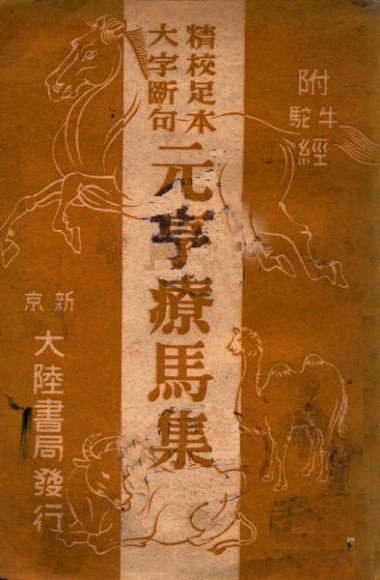 附
牛駝
經
精校足本
大字斷句
元亨療馬集
新京
大陸書局發行